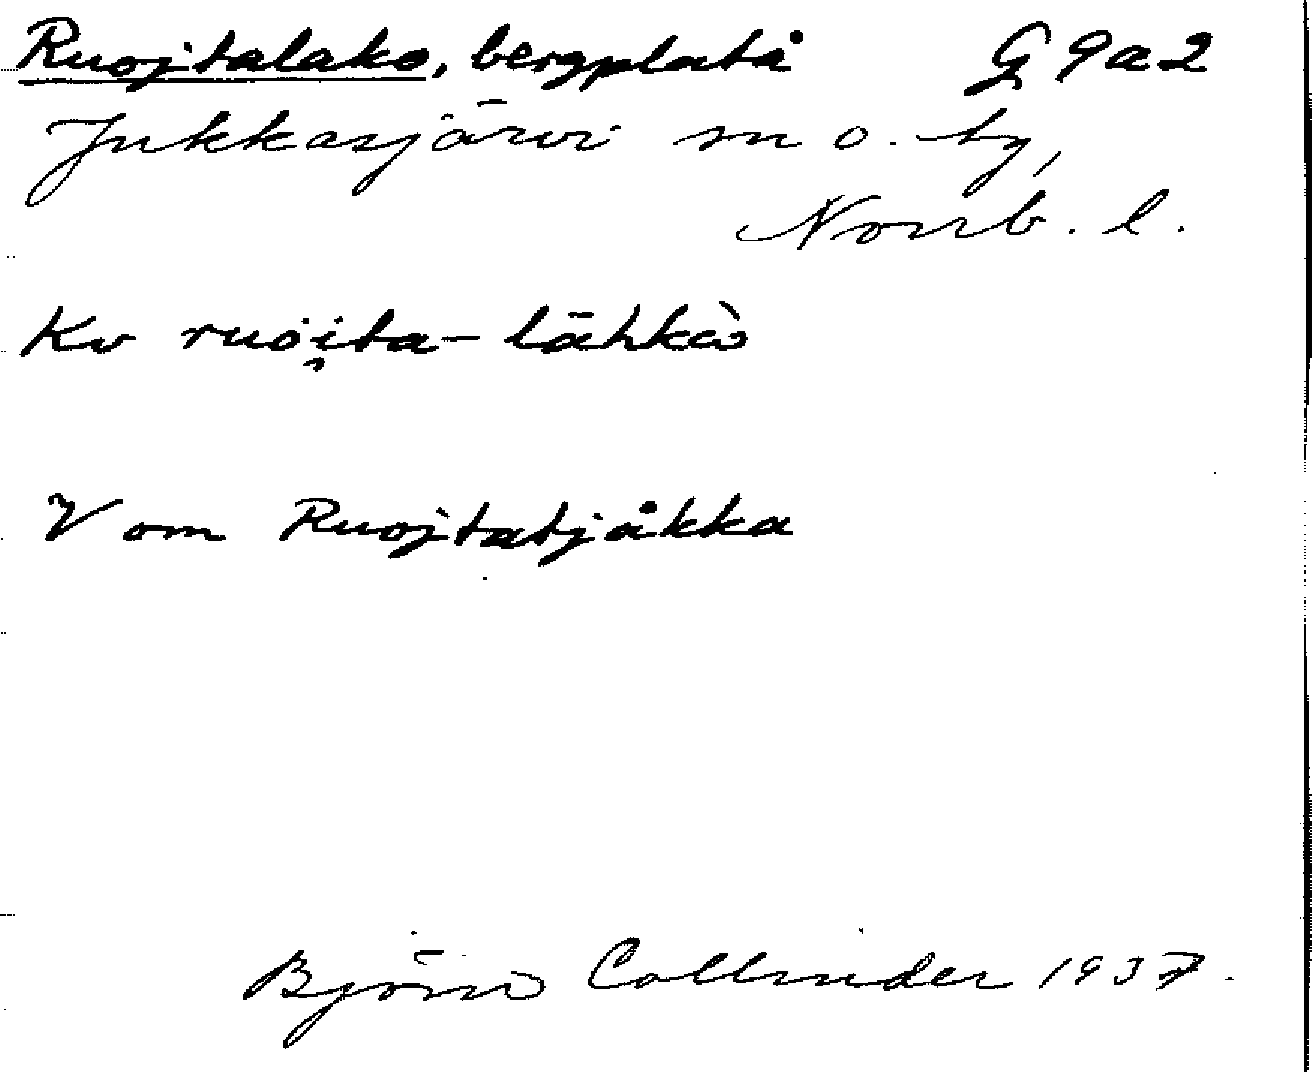 Ruojtalako, bergplatå G 9a2
Jukkasjärvi sn o. by,
Norrb. l.
Kv ruöi̯ta-lāhkò
V om Ruojtatjåkka
Björn Collinder 1937.